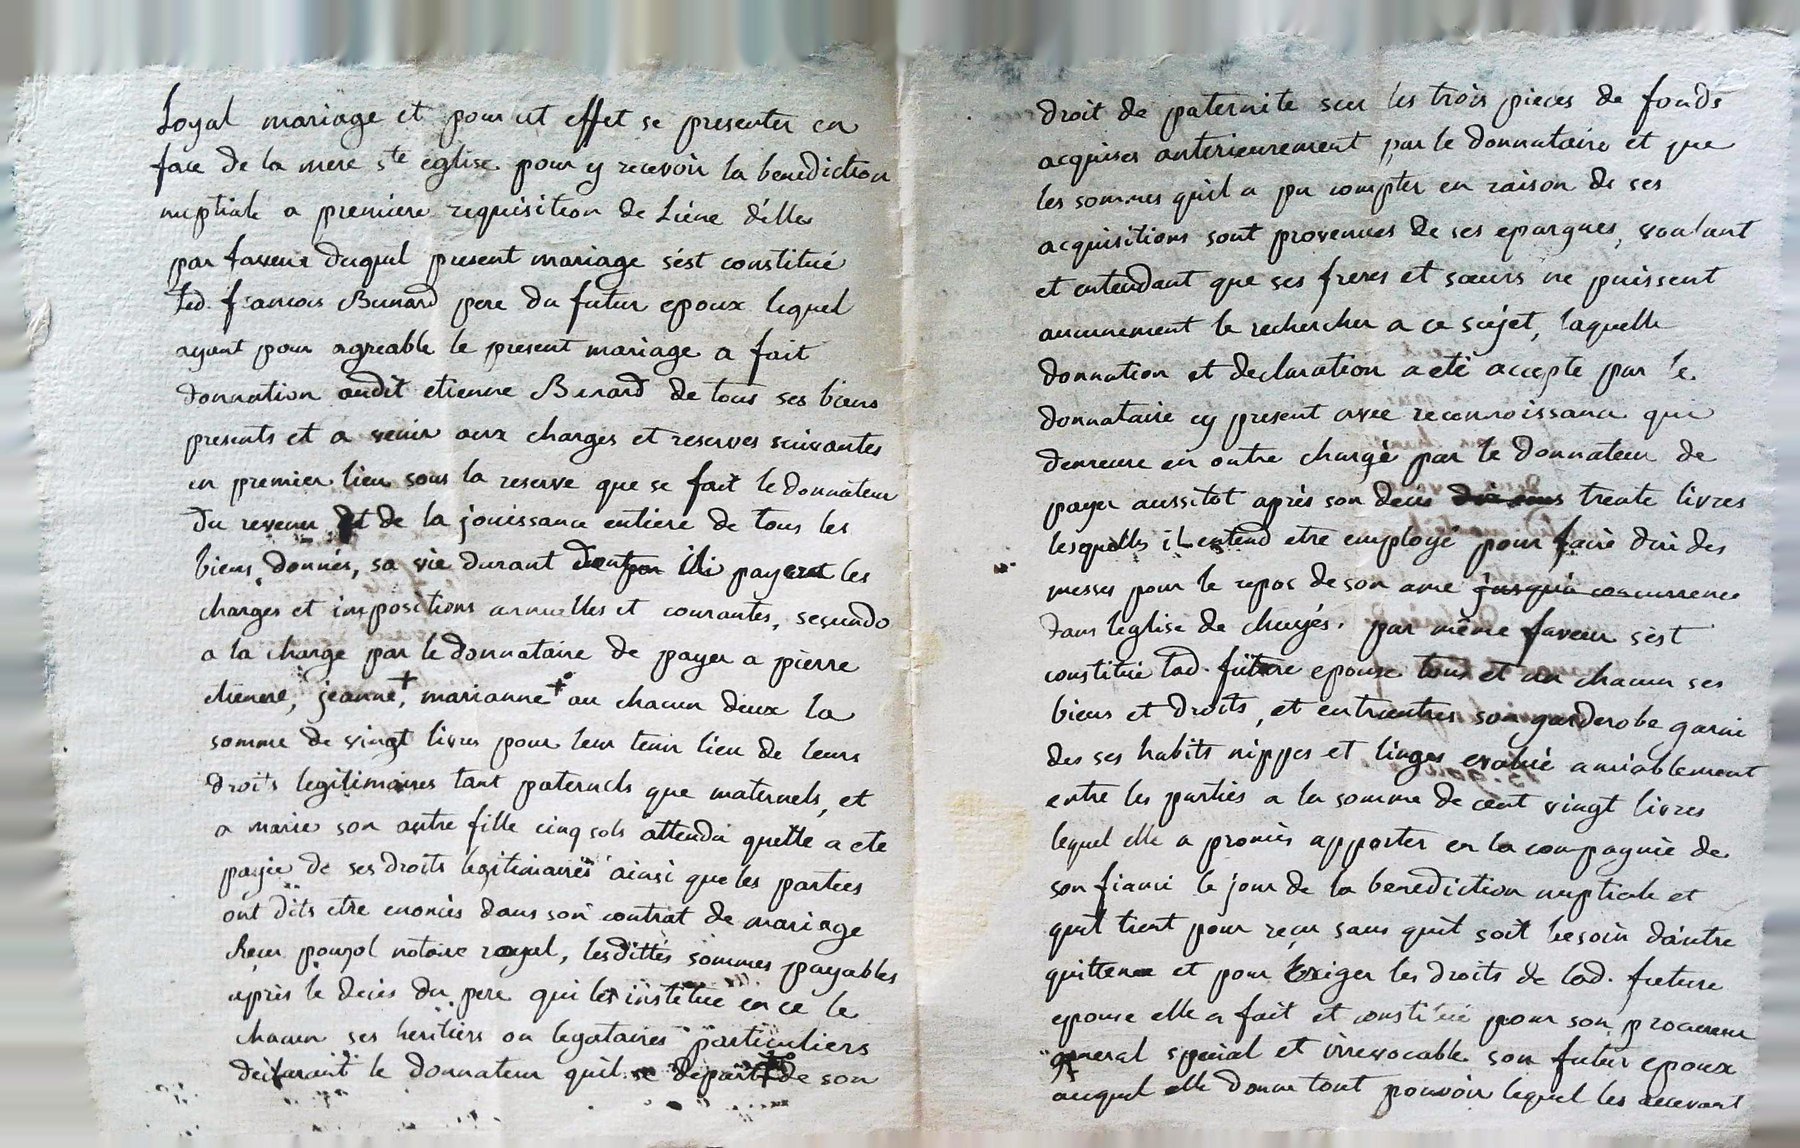 Loyal mariage et pour cet effet se presenter en
face de la mere ste eglise pour y recevoir la benediction
nuptiale a premiere requisition de Liene d'elles
par faveur duquel present mariage s'est constitué
led. francois Bunard pere du futur epoux lequel
ayant pour agreable le present mariage a fait
donnation audit etienne Bunard de tous ses biens
presents et a venir aux charges et reserves suivantes
en premier lieu sous la reserve que se fait le donnateur
du revenu et de la jouissance entiere de tous les
biens donnés, sa vie durant payera les
charges et impositions annuelles et courantes, secundo
a la charge par le donnataire de payer a pierre
etienne, jeanne, marianne au chacun deux la
somme de vingt livres pour leur tenir lieu de leurs
droits legitimaires tant paternels que maternels, et
a marie son autre fille cinq sols attendu quelle a ete
payée de ses droits legitimaires ainsi que les parties
ont dits etre enoncés dans son contrat de mariage
Recu pouzol notaire royal, lesdittes sommes payables
après le deces du pere qui les institue en ce le
chacun ses heritiers ou legataires particuliers
declarant le donnateur quil se depart de son
droit de paternité sur les trois pieces de fonds
acquises anterieurement par le donnataire et que
les sommes quil a pu compter en raison de ses
acquisitions sont provenues de ses epargnes, voulant
et entendant que ses freres et sœurs ne puissent
aucunement le rechercher a ce sujet, laquelle
donnation et declaration a eté accepte par le
donnataire cy present avec reconnoissance qui
demeure en outre chargé par le donnateur de
payer aussitot après son deces trente livres
lesquelles il entend etre employé pour faire dire des
messes pour le repos de son ame jusqu'à concurrence
dans leglise de cheyés. par même faveur s'est
constitué lad. future epouse tous et un chacun ses
biens et droits, et entr'autres son garderobe garni
des ses habits nippes et linges evalué amiablement
entre les parties a la somme de cent vingt livres
lequel elle a promis apporter en la compagnie de
son fiancé le jour de la benediction nuptiale et
quil tient pour reçu sans quil soit besoin d'autre
quittance et pour Exiger les droits de lad. future
epouse elle a fait et constitué pour son procureur
general special et irrevocable son futur epoux
auquel elle donne tout pouvoir lequel les recevant